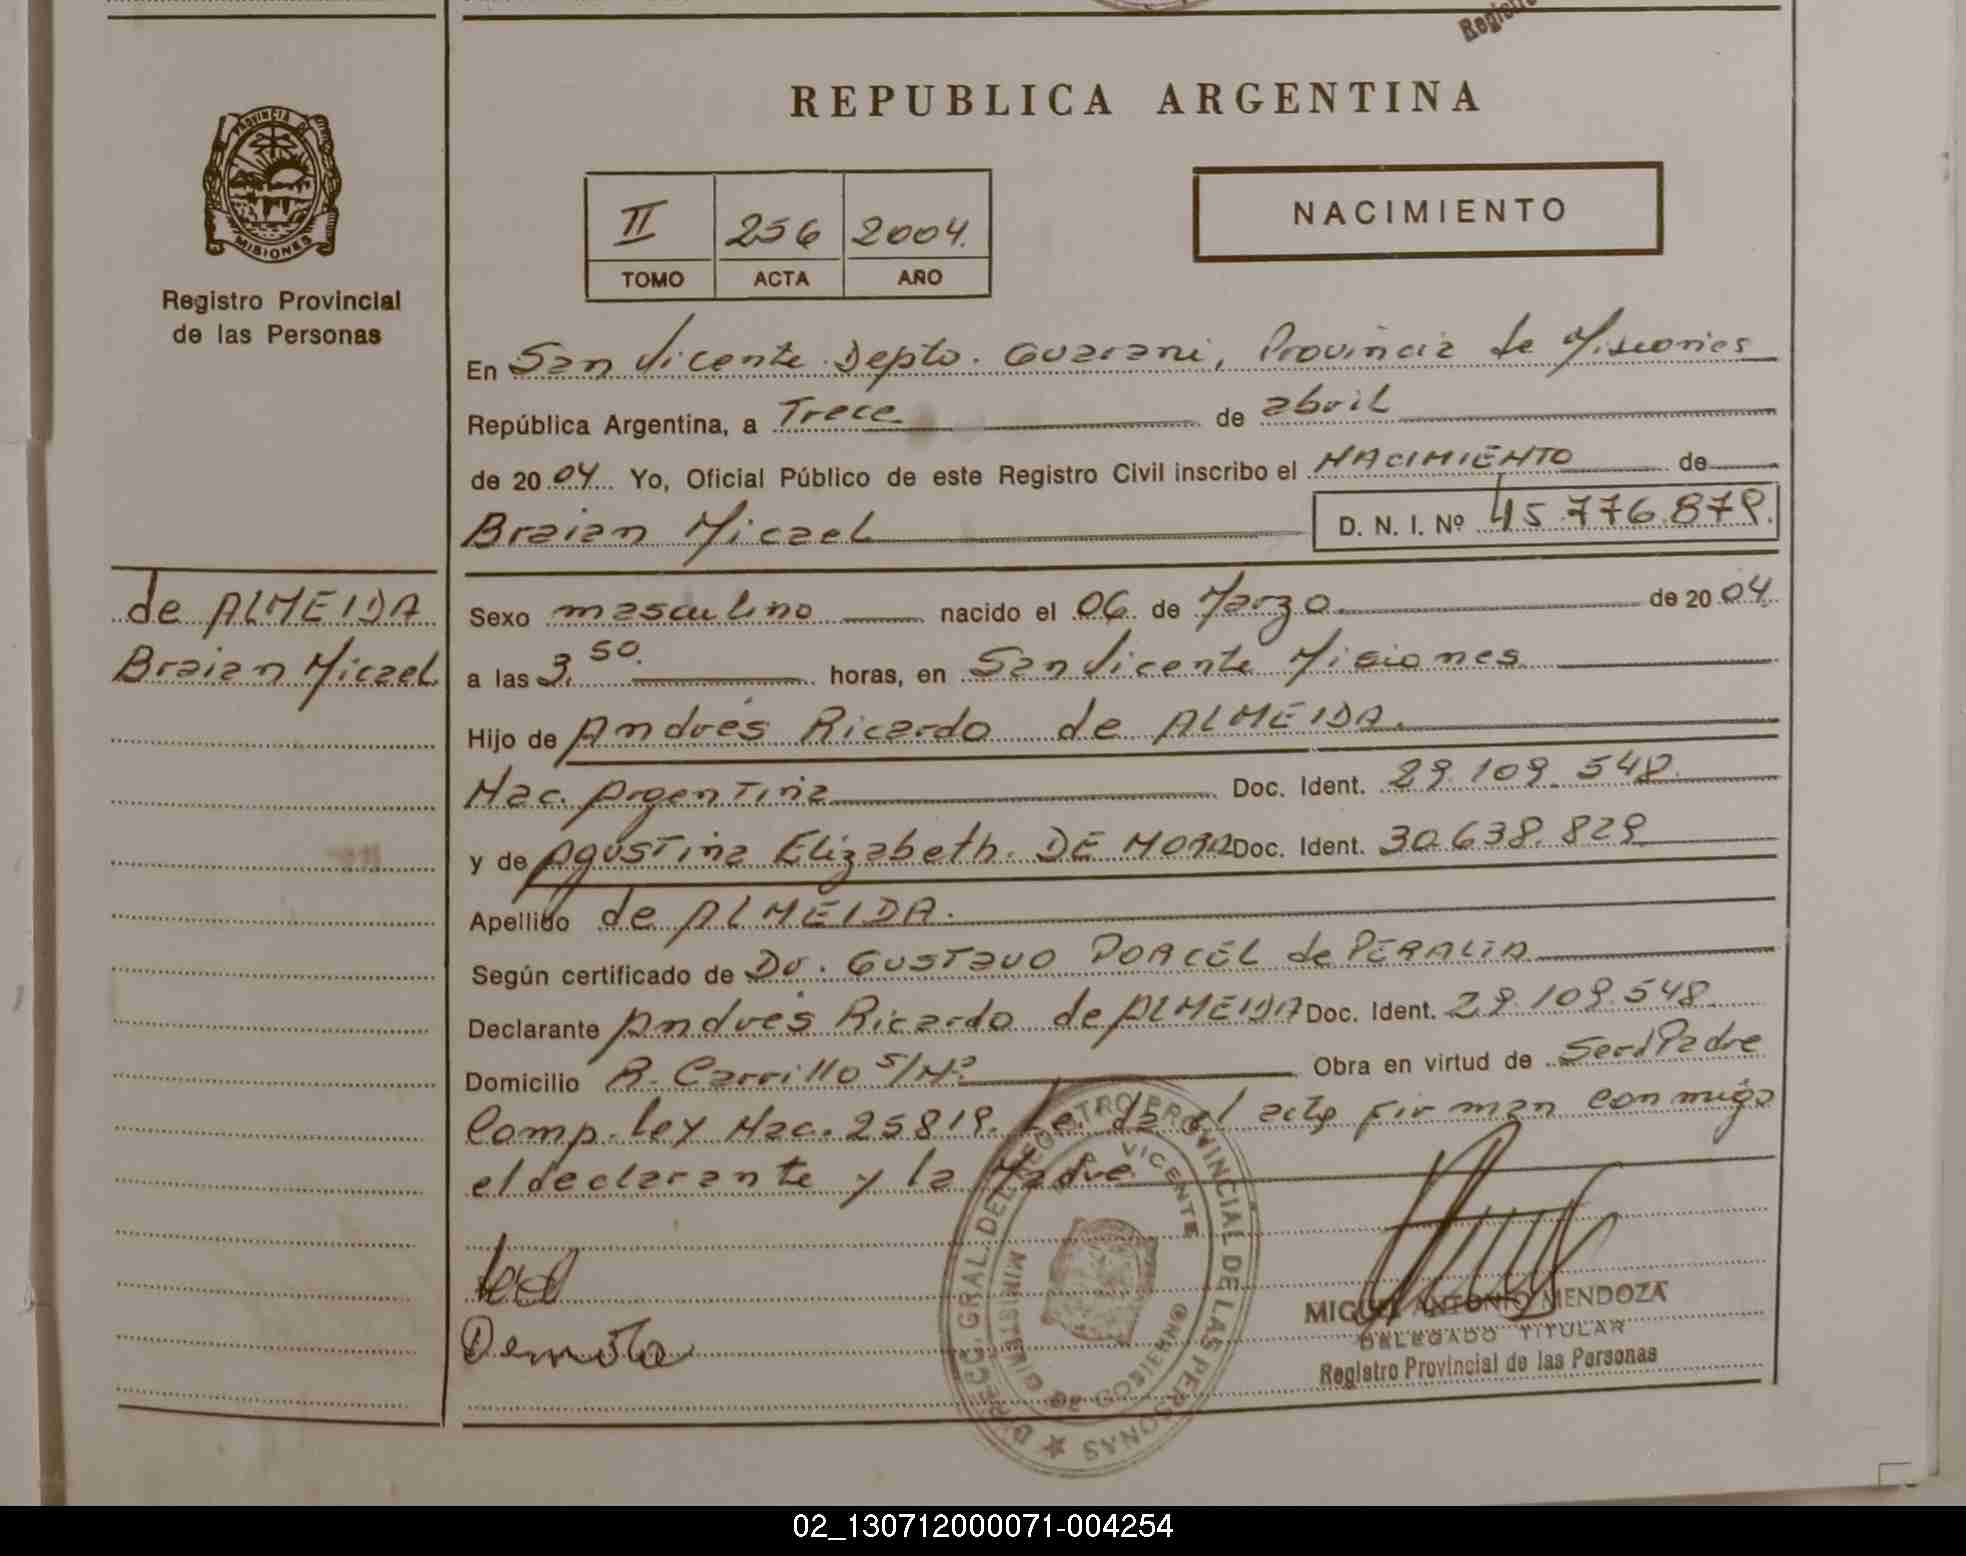 Registro
PROVINCIA DE
MISIONES
Registro Provincial
de las Personas
REPUBLICA ARGENTINA
II 256 2004.
TOMO ACTA AÑO
NACIMIENTO
En San Vicente Depto. Guarani, Provincia de Misiones
República Argentina, a Trece de abril
de 2004 Yo, Oficial Público de este Registro Civil inscribo el NACIMIENTO de
Braian Micael D. N. I. Nº 45.776.879.
de ALMEIDA
Braian Micael
Sexo masculino nacido el 06 de Marzo de 2004.
a las 3,50. horas, en San Vicente Misiones
Hijo de Andrés Ricardo de ALMEIDA.
Nac. Argentina Doc. Ident. 29.109.548.
y de Agustina Elizabeth. DE MORA Doc. Ident. 30.638.829
Apellido de ALMEIDA.
Según certificado de Dr. GUSTAVO DORCEL de PERALTA
Declarante Andrés Ricardo de ALMEIDA Doc. Ident. 29.109.548.
Domicilio R. Carrillo S/Nº Obra en virtud de Ser Padre
Comp. Ley Nac. 25819. el acta firman conmigo
el declarante y la Madre
Demora
DIRECC. GRAL. DEL REGISTRO PROVINCIAL DE LAS PERSONAS
VICENTE
MINISTERIO DE GOBIERNO
MIGUEL ANTONIO MENDOZA
DELEGADO TITULAR
Registro Provincial de las Personas
02_130712000071-004254